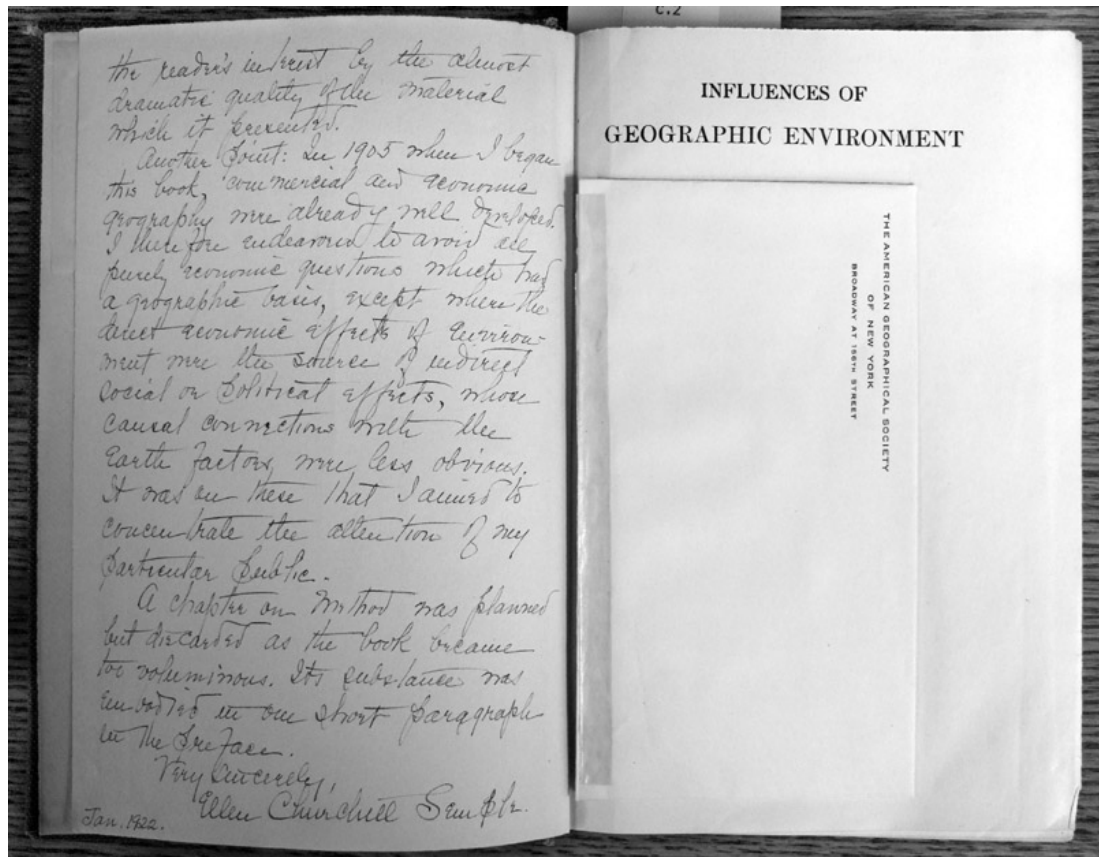 the reader's interest by the almost
dramatic quality of the material
which it presented.
Another point: In 1905 when I began
this book, commercial and economic
geography were already well developed.
I therefore endeavored to avoid all
purely economic questions which had
a geographic basis, except where the
direct economic effects of environ-
ment were the source of indirect
social or political effects, whose
causal connections with the
Earth factors were less obvious.
It was on these that I aimed to
concentrate the attention of my
particular public.
A chapter on Method was planned
but discarded as the book became
too voluminous. Its substance was
embodied in one short paragraph
in the Preface.
Very sincerely,
Ellen Churchill Semple.
Jan. 1922.
C.2
INFLUENCES OF
GEOGRAPHIC ENVIRONMENT
THE AMERICAN GEOGRAPHICAL SOCIETY
OF NEW YORK
BROADWAY AT 156TH STREET